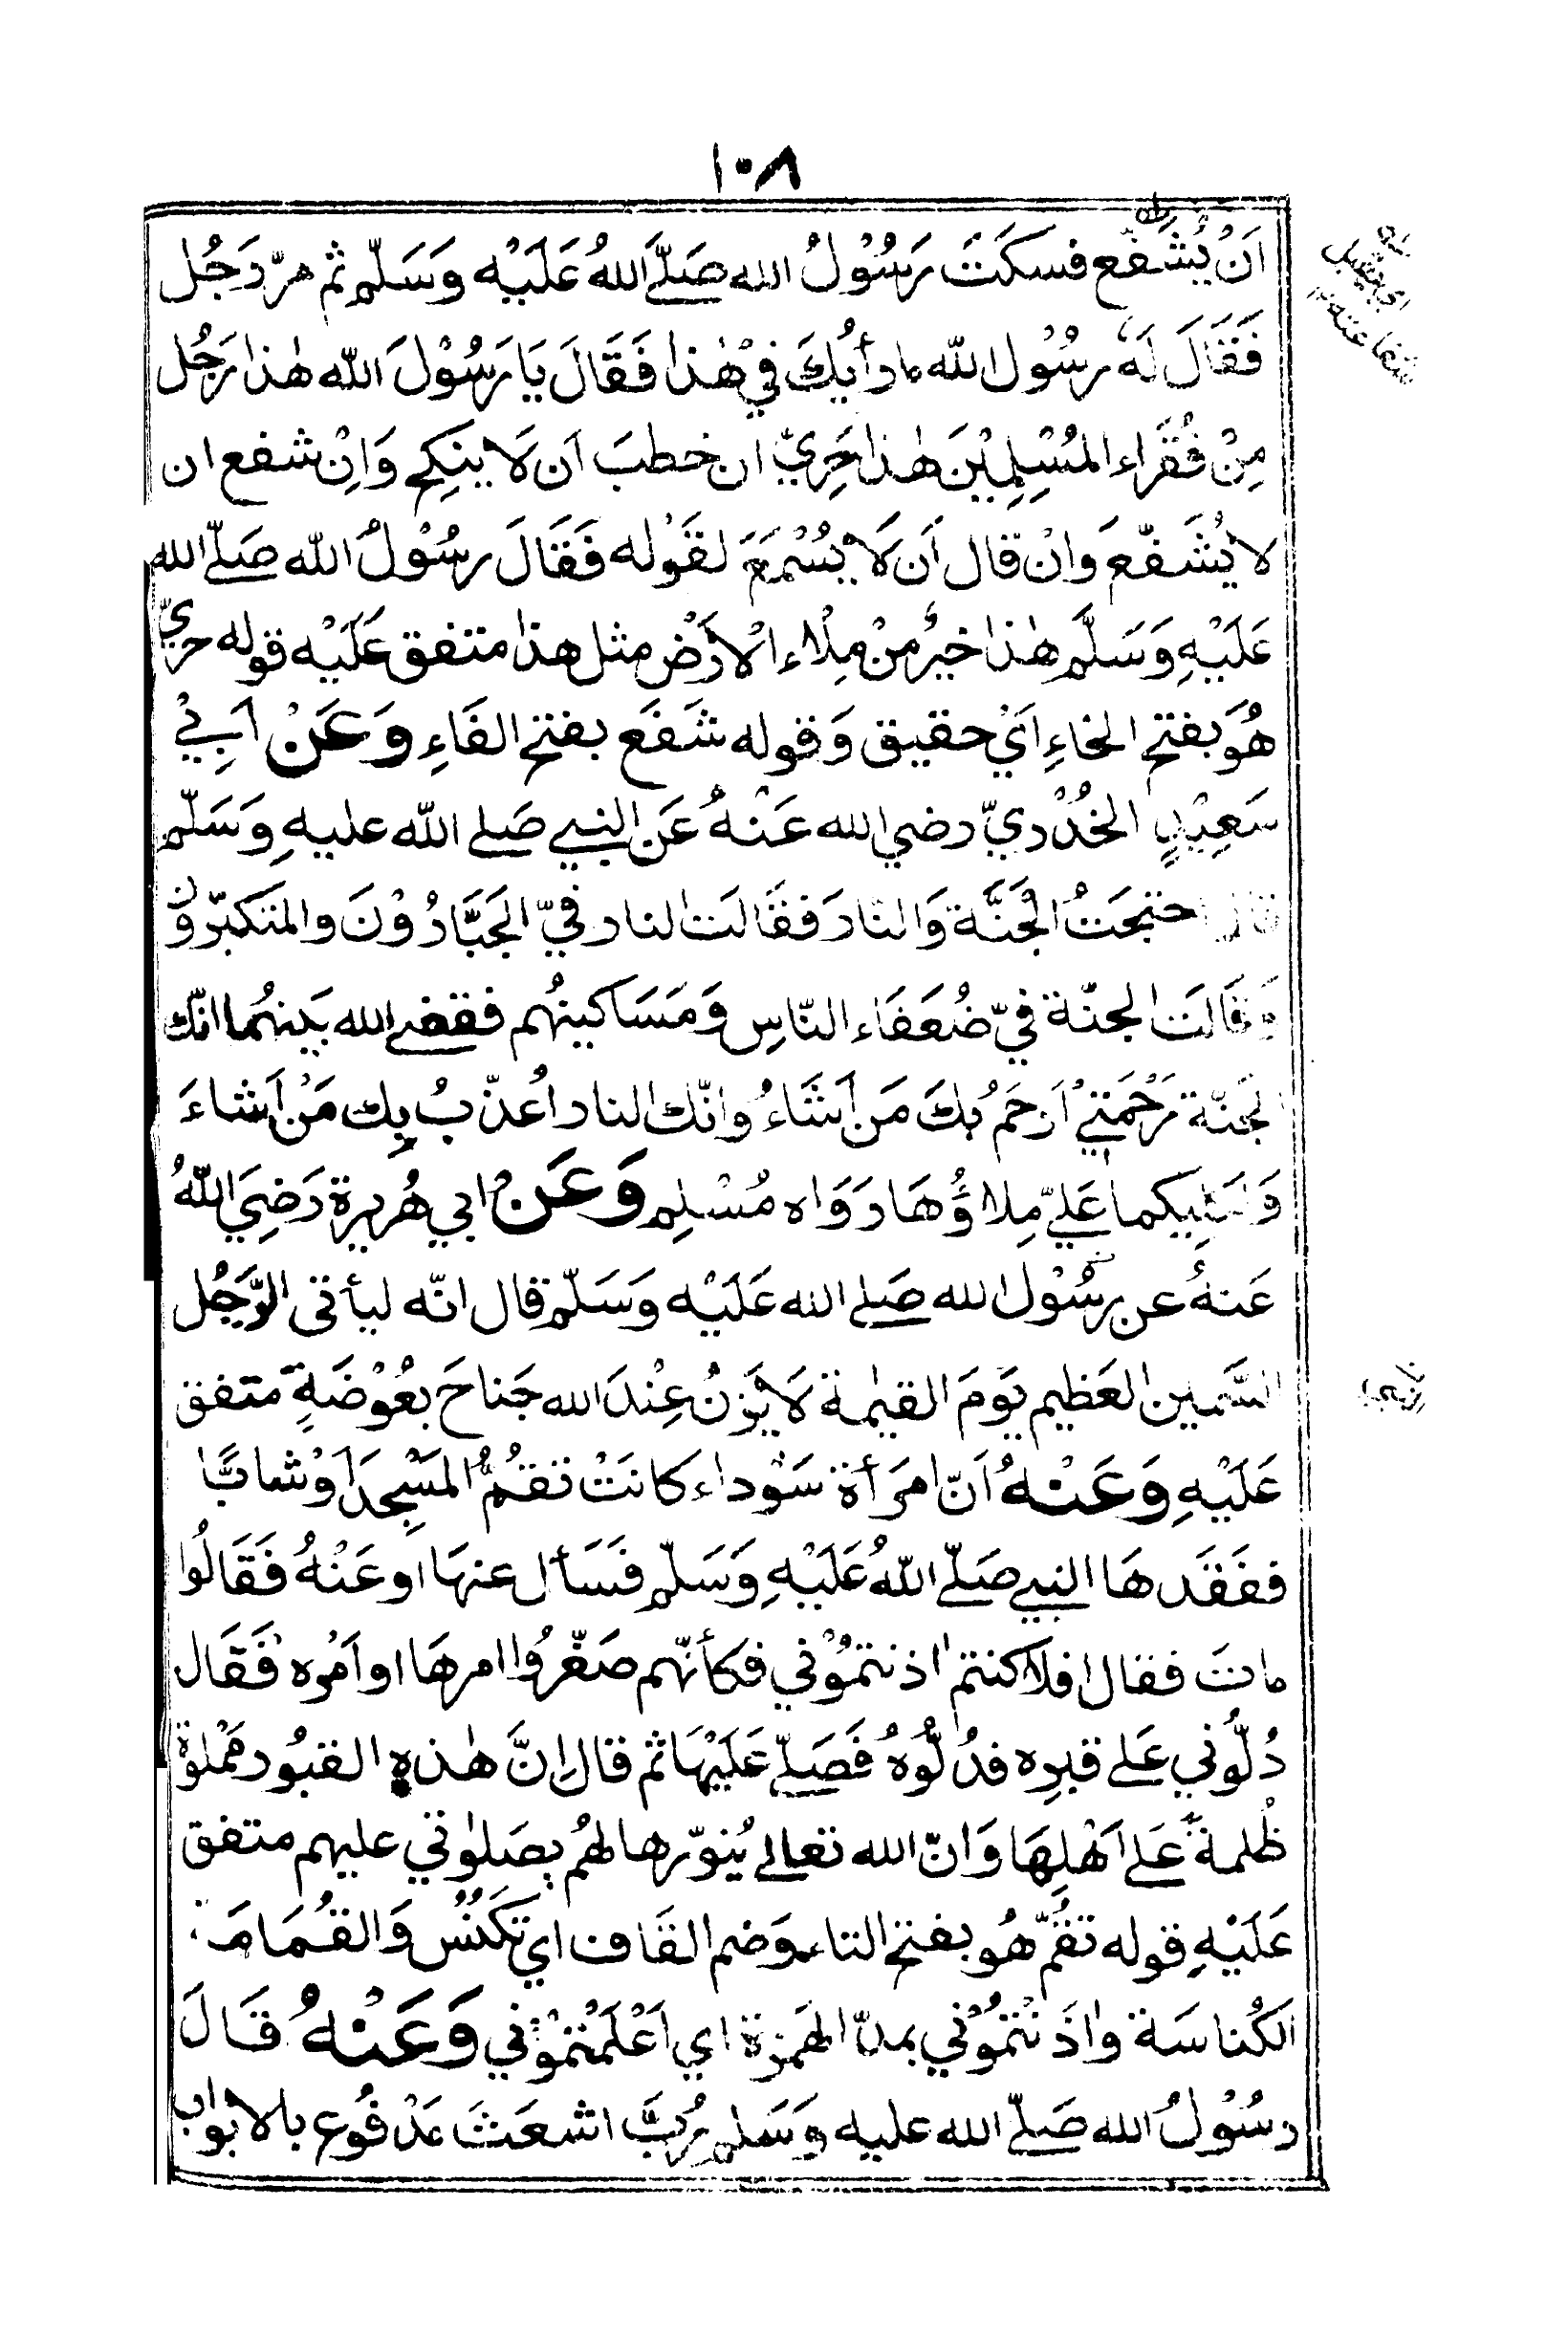 ١٠٨
اَنْ يُشَفّع فسكَتَ رَسُوْلُ الله صَلَّےَ اللهُ عَلَيْه وَسَلّم ثم مرّ رَجُل
فَقَالَ لَهٗ رسُوْل اللّٰه ما رأيُكَ فِيْ هٰذا فَقَالَ يَا رَسُوْلَ اللّٰه هٰذا رَجُل
مِنْ فُقَراء المُسْلِمِيْنَ هٰذا حَرِيّ ان خطبَ اَن لَا ينكِح وَاِنْ شفع ان
لا يُشَفّعَ وَاِنْ قال اَن لَا يُسْمَعَ لقَوْله فَقَالَ رسُوْلُ اللّٰه صَلّے الله
عَلَيْهِ وَسَلَّم هٰذا خيرٌ منْ مِلْاء الْأرَضْ مثل هذا متفق عَلَيْه قوله حريّ
هُوَ بفتح الحاءِ اَيْ حقيق وَقوله شَفَع بفتح الفَاءِ وَعَنْ اَبِيْ
سَعِيْدٍ الخُدْرِيّ رضي الله عَنْهُ عَن النبي صَلے اللّٰه عليهِ وَسَلّم
قال احتجَتُ الْجَنَّة وَالنّارَ فقَالَت النار فيّ الجَبَّارُوْنَ والمتكبّروْن
وَقَالَت الجنّة فيّ ضُعَفَاء النّاسِ وَمَسَاكينهُم فقضے الله بَينهُما انّك
الجَنّة رَحْمَتِيْ اَرحَمُ بكَ مَن اَشَاءُ وانّك النار اُعذّبُ بِك مَنْ اَشاءَ
وَلكليكما عَليّ مِلاؤُهَا رَوَاه مُسْلِم وَعَنْ ابي هُريرة رَضِيَ اللّٰهُ
عَنهُ عن رسُوْل الله صَلے الله عَلَيْه وَسَلّم قال انّه ليأتى الرَّجُل
السَّمين العَظيم يَوْمَ القيٰمة لَا يَزنُ عِنْدَ الله جَناحَ بعُوْضَةٍ متفق
عَلَيْهِ وَعَنْهُ اَنّ امرَأة سَوْداء كانَتْ تقُمُّ المَسْجِدَ اَوْ شابًّا
ففَقَدهَا النبي صَلّے اللّٰهُ عَلَيْهِ وَسَلّم فَسَأل عنهَا او عَنْهُ فَقَالُوا
ماتَ فقال افلا كنتم اذنتمُوْني فكأنّهم صَغّرُوا امرهَا او اَمْره فَقَال
دُلُّوني عَلے قبرِه فدُلُّوْهُ فَصَلّے عَلَيْهَا ثم قال اِنَّ هٰذه القبُور مَمْلوة
ظُلمة عَلے اَهْلِهَا وَانّ الله تعالى يُنوّرها لهُم بصَلٰوتي عليهم متفق
عَلَيْهِ قوله تقُمّ هُو بفتح التاء وَضم القَاف اي تَكنُسُ وَالقُمَامَة
اَلكُناسَة واٰذَنْتمُوْني بمدّ الهَمزة اي اَعْلَمْتمُوْني وَعَنْهُ قَالَ
رسُوْلُ الله صَلّے الله عليه وَسَلم رُبَّ اشعَثَ مَدْفُوع بالابواب
اي يقبل
شفاعته